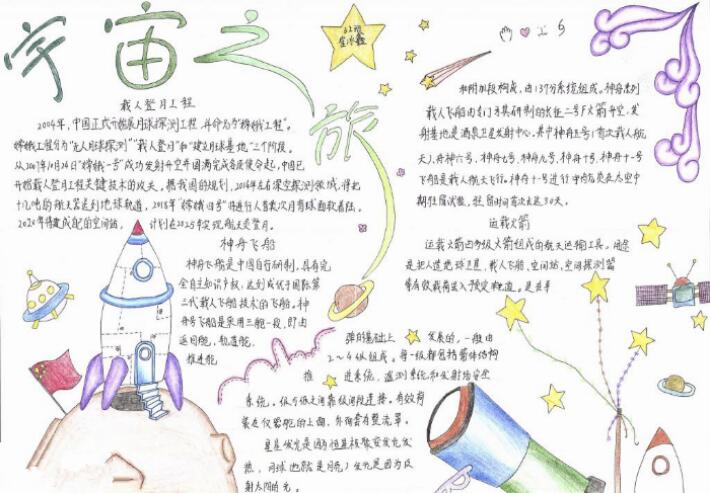 宇宙之旅
载人登月工程
2004年,中国正式开始展月球探测工程,并命为个"嫦娥工程"。
嫦娥工程分为"无人月球探测""载人登月"和"建立月球基地"三个阶段。
从2007年10月24日"嫦娥一号"成功发射升空并圆满完成各项使命起,中国已
开始载人登月工程关键技术的攻关。
2020年将建成配的空间站,
计划在2025年实现航天员登月。
神舟飞船
神舟飞船是中国自行研制,具有完
全自主知识产权,达到或优于国际第
三代载人飞船技术的飞船。神
舟号飞船是采用三舱一段,即由
返回舱,轨道舱,
推进舱
和附加段构成,由13个分系统组成。神舟系列
载人飞船由专门为其研制的长征二号F火箭升空,发
射基地是酒泉卫星发射中心。
天),神舟六号,神舟七号,神舟九号,神舟十号,神舟十一号
飞船是载人航天飞行。神舟十一号进行宇航员在太空中
期驻留试验,驻留时间首次长达30天。
运载火箭
运载火箭由多级火箭组成的航天运输工具。用途
是把人造地球卫星,载人飞船,空间站,空间探测器
等有效载荷送入预定轨道。是在导
弹的基础上
发展的,一般由
2~4级组成。每一级都包括箭体结构
推
进系统,遥测系统和发射场安全
系统。级与级之间靠级间段连接。有效荷
装在仪器舱的上面,外面套有整流罩。
星星发光是因为恒星核聚变发光发
热,月球(也就是月亮)发光是因为反
射太阳的光。